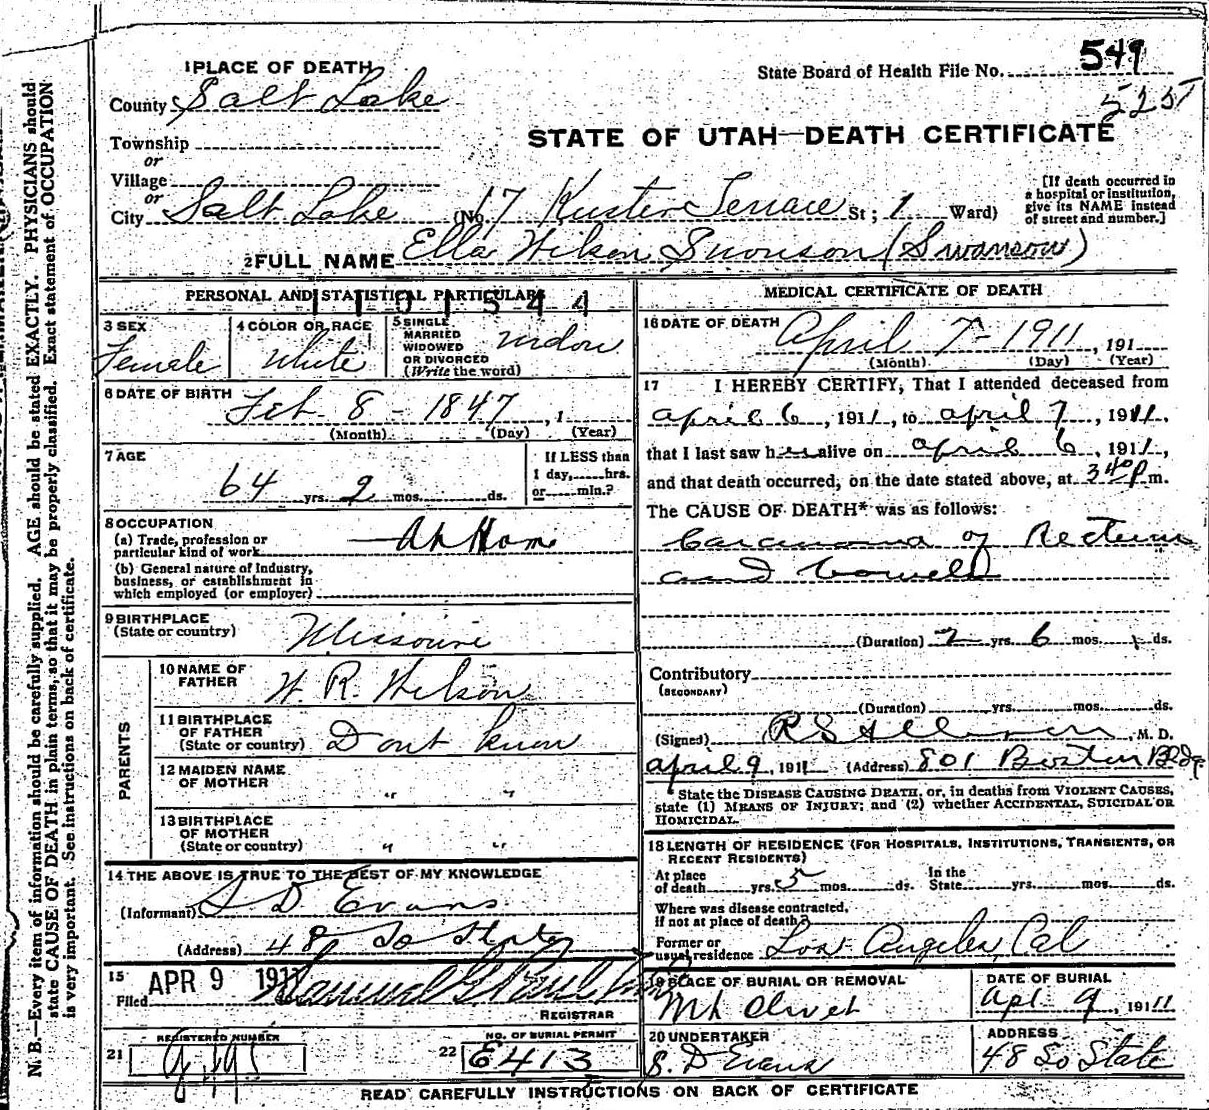 N. B.—Every item of information should be carefully supplied. AGE should be stated EXACTLY. PHYSICIANS should
state CAUSE OF DEATH in plain terms, so that it may be properly classified. Exact statement of OCCUPATION
is very important. See instructions on back of certificate.
1 PLACE OF DEATH
County Salt Lake
Township
or
Village
or
City Salt Lake (No. 17 Kuster Terrace St; 1 Ward)
State Board of Health File No. 549
525
STATE OF UTAH—DEATH CERTIFICATE
[If death occurred in
a hospital or institution,
give its NAME instead
of street and number.]
2 FULL NAME Ella Wilson Swonson (Swanson)
PERSONAL AND STATISTICAL PARTICULARS
3 SEX
Female
4 COLOR OR RACE
White
5 SINGLE
MARRIED
WIDOWED
OR DIVORCED
(Write the word)
Widow
6 DATE OF BIRTH Feb 8 - 1847, 1
(Month) (Day) (Year)
7 AGE
64 yrs. 2 mos. ds.
If LESS than
1 day, hrs.
or min.?
8 OCCUPATION
(a) Trade, profession or
particular kind of work At Home
(b) General nature of industry,
business, or establishment in
which employed (or employer)
9 BIRTHPLACE
(State or country) Missouri
PARENTS
10 NAME OF
FATHER W. R. Wilson
11 BIRTHPLACE
OF FATHER
(State or country) Dont know
12 MAIDEN NAME
OF MOTHER " "
13 BIRTHPLACE
OF MOTHER
(State or country) " "
14 THE ABOVE IS TRUE TO THE BEST OF MY KNOWLEDGE
(Informant) S D Evans
(Address) 48 So State
15
Filed APR 9 1911
REGISTRAR
21 REGISTERED NUMBER
22 NO. OF BURIAL PERMIT
6413
MEDICAL CERTIFICATE OF DEATH
16 DATE OF DEATH April 7 - 1911, 191
(Month) (Day) (Year)
17 I HEREBY CERTIFY, That I attended deceased from
April 6, 1911, to April 7, 1911,
that I last saw her alive on April 6, 1911,
and that death occurred, on the date stated above, at 3 40 P m.
The CAUSE OF DEATH* was as follows:
Carcinoma of Rectum
and bowels
(Duration) 2 yrs. 6 mos. ds.
Contributory
(SECONDARY)
(Duration) yrs. mos. ds.
(Signed) R S , M. D.
April 9, 1911 (Address) 801 Boston Bldg
*State the DISEASE CAUSING DEATH, or, in deaths from VIOLENT CAUSES,
state (1) MEANS OF INJURY; and (2) whether ACCIDENTAL, SUICIDAL OR
HOMICIDAL.
18 LENGTH OF RESIDENCE (FOR HOSPITALS, INSTITUTIONS, TRANSIENTS, OR
RECENT RESIDENTS)
At place
of death yrs. 5 mos. ds.
In the
State yrs. mos. ds.
Where was disease contracted,
if not at place of death?
Former or
usual residence Los Angeles, Cal
19 PLACE OF BURIAL OR REMOVAL
Mt Olivet
DATE OF BURIAL
Apl 9, 1911
20 UNDERTAKER
S. D Evans
ADDRESS
48 So State
READ CAREFULLY INSTRUCTIONS ON BACK OF CERTIFICATE